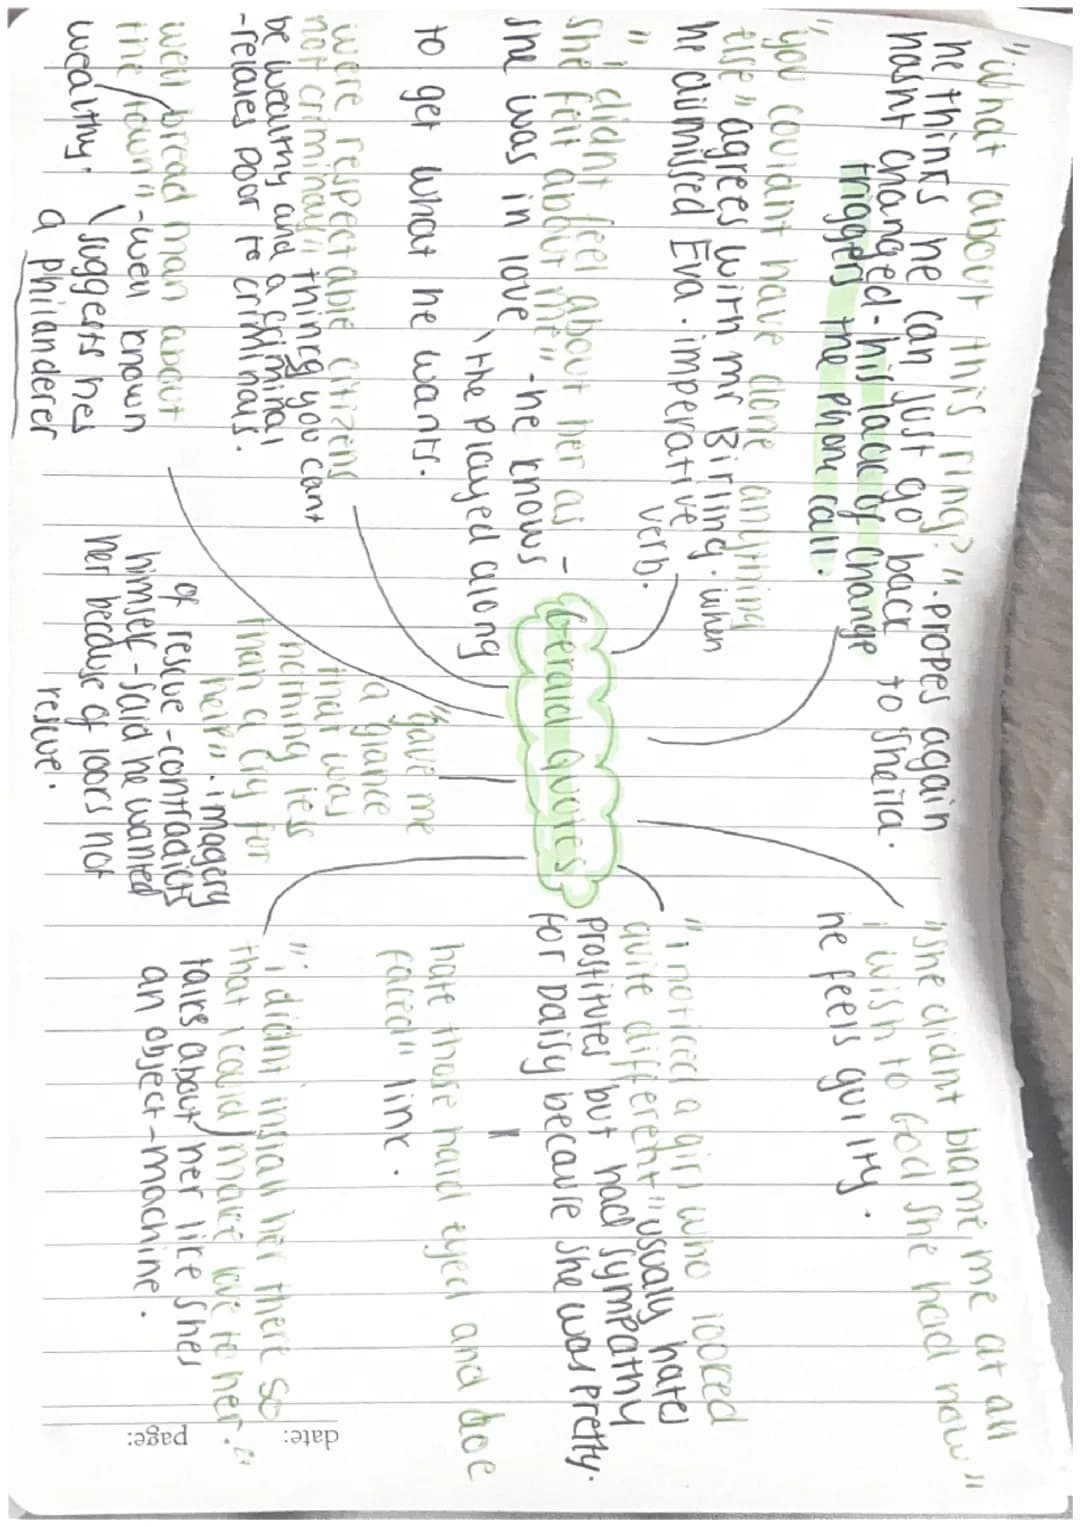 "What about this ring?". propes again
he thinks he can just go back to sheila.
hasnt changed - his lack of change
triggers the phone call.
"you couldnt have done anything
else" agrees with mr Birling. when
he dismissed Eva. imperative
verb.
"i didnt feel about her as
she felt about me" - he knows
she was in love \ the played along
to get what he wants.
were respectable citizens
not criminals" things you cant
be wealthy and a criminal
- relates poor to criminals.
well bread man about
the town" - well known
wealthy. \ suggests hes
a philanderer
Gerald quotes
"gave me
a glance
that was
nothing less
than a cry for
help". imagery
of rescue - contradicts
himself - said he wanted
her because of looks not
rescue.
"she didnt blame me at all
i wish to God she had now"
he feels guilty.
"i noticed a girl who looked
quite different" usually hates
prostitutes but had sympathy
for daisy because she was pretty.
hate those hard eyed and doe
faced" link.
"i didnt install her there so
that i could make love to her."
talks about her like shes
an object - machine.
date:
page: